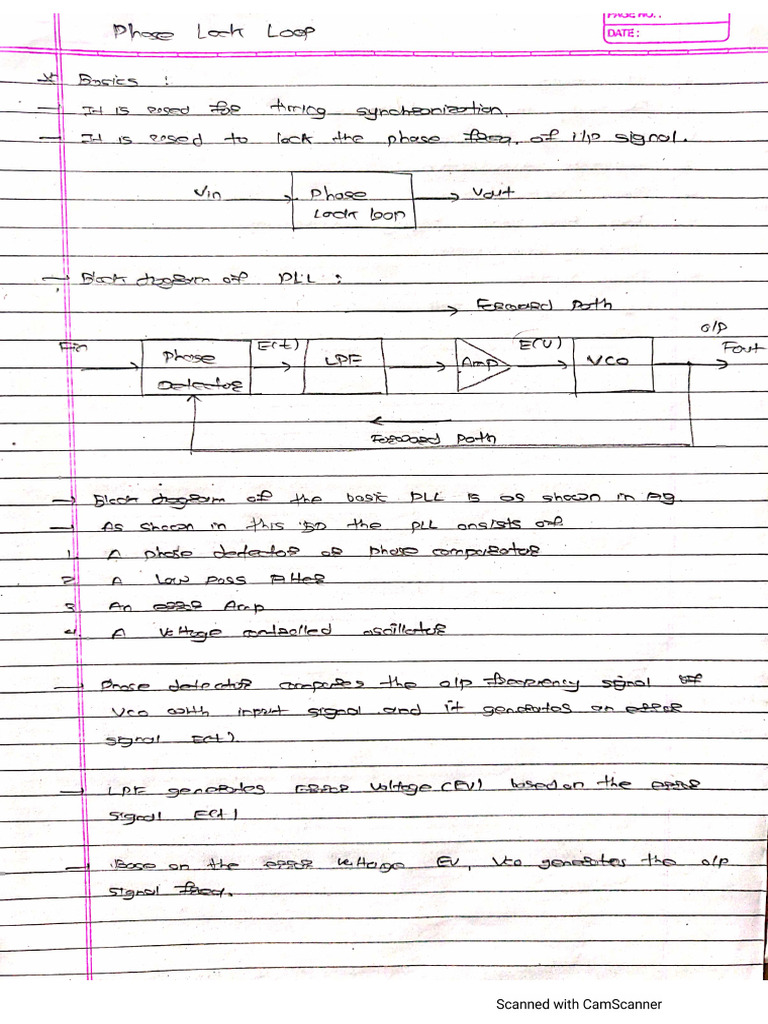 PAGE NO.:
DATE:
Phase Lock Loop
* Basics :
→ It is used for timing synchronization.
→ It is used to lock the phase freq. of i/p signal.
Vin Phase Lock loop Vout
→ Block diagram of PLL :
Forward Path
Fin Phase Detector E(t) LPF Amp E(V) VCO o/p Fout
Forward path
→ Block diagram of the basic PLL is as shown in fig
→ As shown in this BD the PLL consists of
1. A phase detector or phase comparator
2. A Low pass filter
3. An error Amp
4. A voltage controlled oscillator
→ Phase detector compares the o/p frequency signal of
VCO with input signal and it generates an error
signal E(t).
→ LPF generates error voltage (EV) based on the error
signal E(t)
→ Base on the error voltage EV, Vco generates the o/p
signal freq.
Scanned with CamScanner